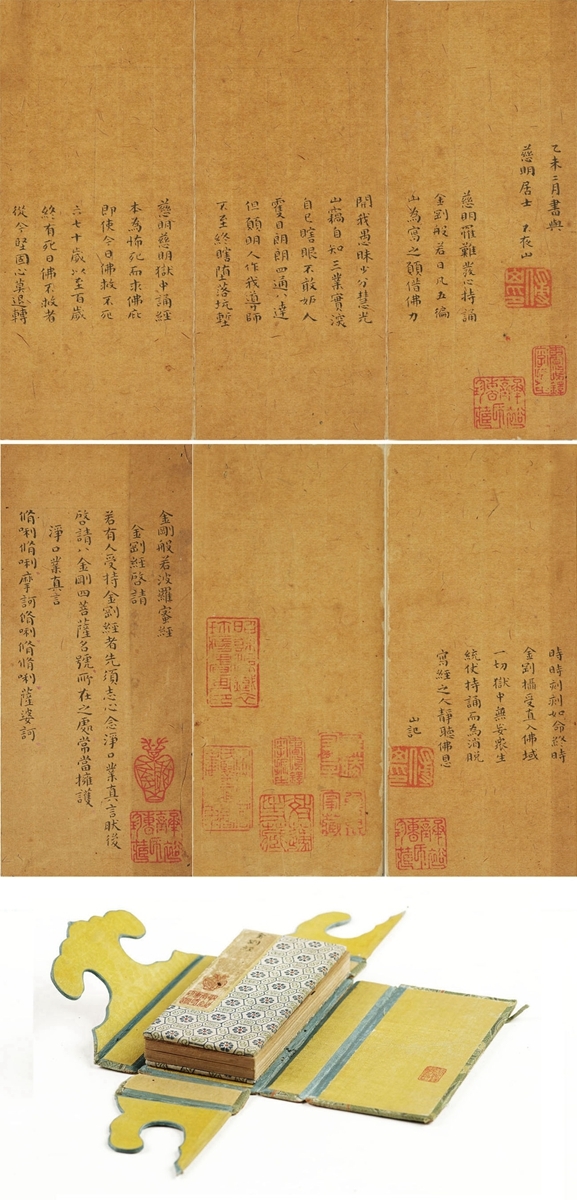 乙未二月書與
慈明居士 不夜山
傅山印
慈明罹難發心持誦
金剛般若日凡五徧
山為寫之願借佛力
開我愚昧少分慧光
山竊自知三業實深
自己瞎眼不敢妬人
但願明人作我導師
日朗朗四通八達
不至終瞎墮落坑塹
慈明慈明獄中誦經
本為怖死而求佛庇
即使今日佛救不死
六七十歲以至百歲
終有死日佛不救者
從今堅固心莫退轉
時時刻刻如命終時
金剛攝受直入佛域
一切獄中無妄衆生
統仗持誦而為消脫
寫經之人靜聽佛恩
山記
傅山印
金剛般若波羅蜜經
金剛經啓請
若有人受持金剛經者先須志心念淨口業真言肰後
啓請八金剛四菩薩名號所在之處常當擁護
淨口業真言
脩唎脩唎摩訶脩唎脩脩唎薩婆訶
金剛經